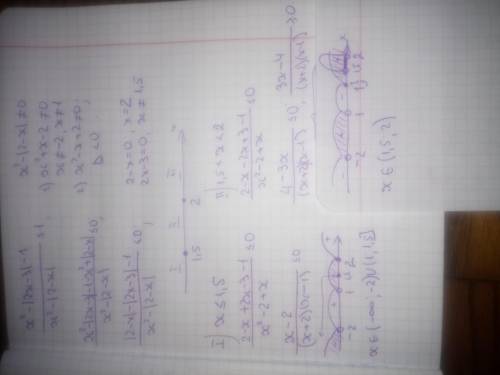 x²-|2x-3|-1 / x²-|2-x| ≤ 1,
x²-|2-x| ≠ 0
1) x²+x-2 ≠ 0
x≠-2, x≠1
2) x²-x+2 ≠ 0,
D<0
|2-x|-|2x-3|-1 / x²-|2-x| ≤ 0,
2-x=0, x=2
2x-3=0, x=1,5
I II III
1,5 2
I) x ≤ 1,5
2-x+2x-3-1 / x²-2+x ≤ 0
x-2 / (x+2)(x-1) ≤ 0
-2 1 1,5 2
x∈(-∞,-2)∪(1, 1,5]
II) 1,5<x<2
2-x-2x+3-1 / x²-2+x ≤ 0
4-3x / (x+2)(x-1) ≤ 0, 3x-4 / (x+2)(x-1) ≥ 0
-2 1 1,5 2
x∈(1,5, 2)